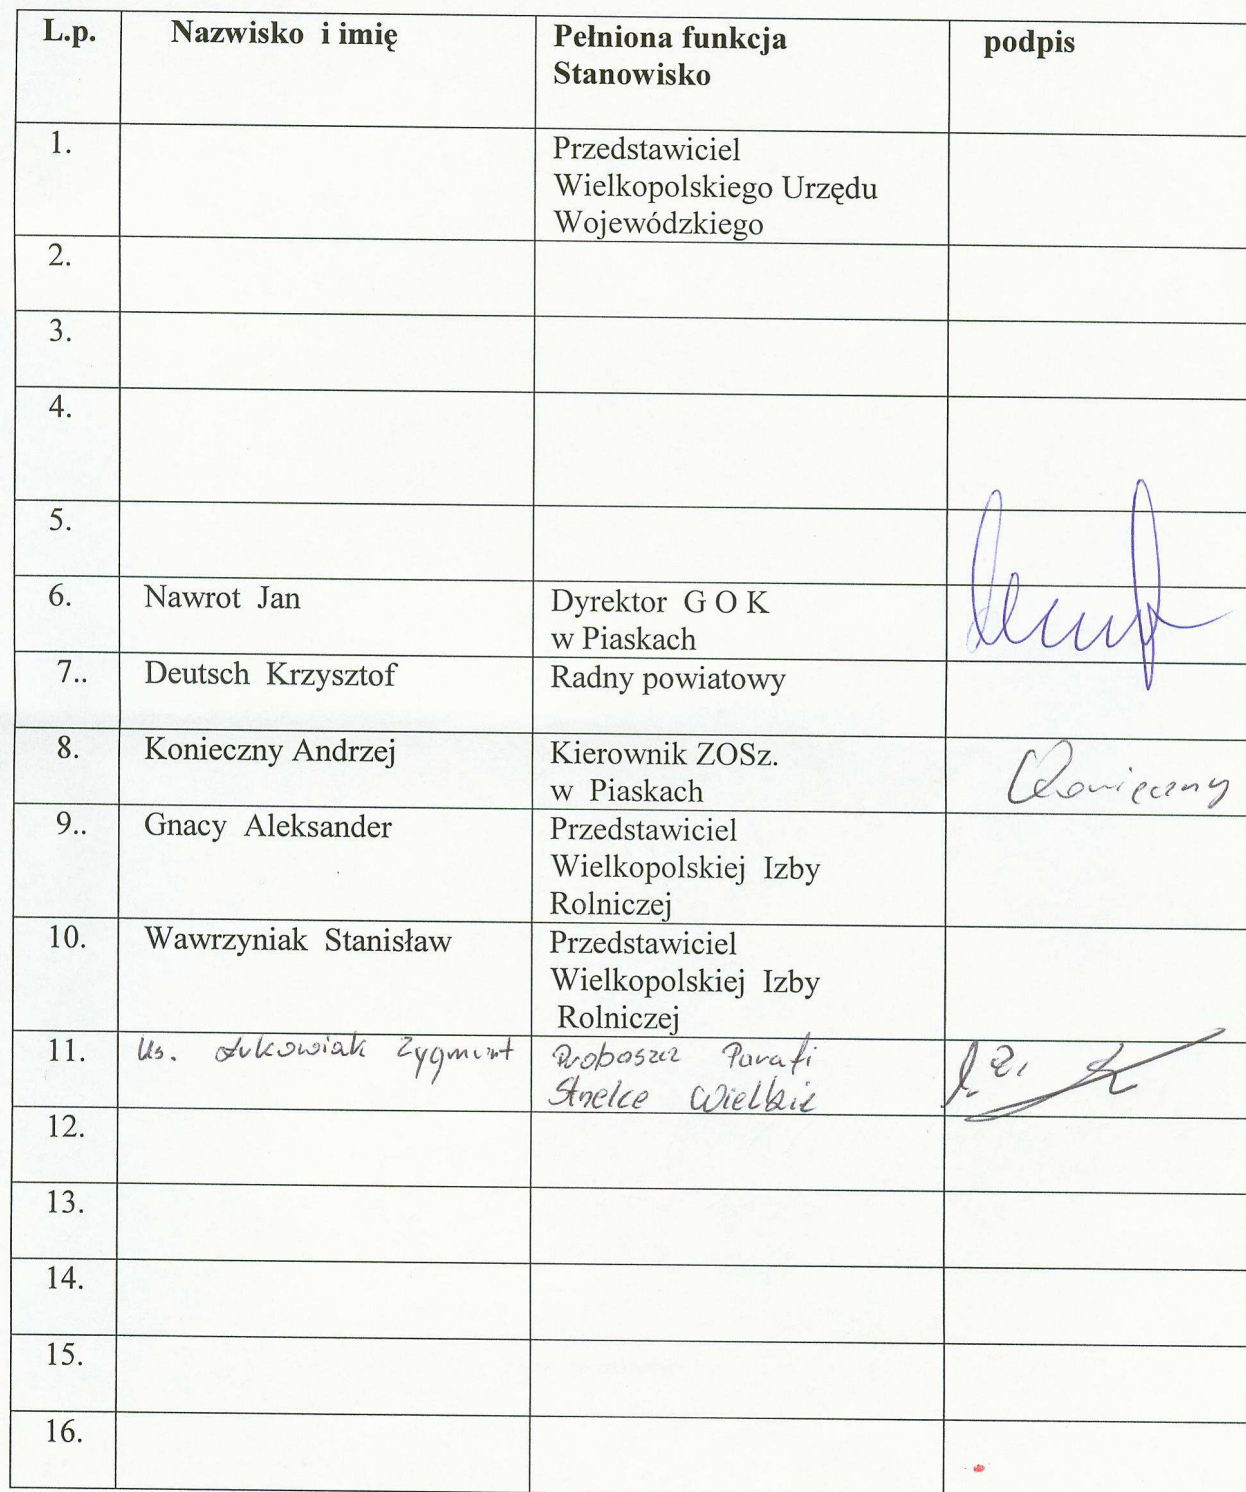 L.p. Nazwisko i imię Pełniona funkcja podpis
Stanowisko
1. Przedstawiciel
Wielkopolskiego Urzędu
Wojewódzkiego
2.
3.
4.
5.
6. Nawrot Jan Dyrektor G O K
w Piaskach
7.. Deutsch Krzysztof Radny powiatowy
8. Konieczny Andrzej Kierownik ZOSz. Konieczny
w Piaskach
9.. Gnacy Aleksander Przedstawiciel
Wielkopolskiej Izby
Rolniczej
10. Wawrzyniak Stanisław Przedstawiciel
Wielkopolskiej Izby
Rolniczej
11. ks. Łukowiak Zygmunt Proboszcz Parafi
Strzelce Wielkie
12.
13.
14.
15.
16.